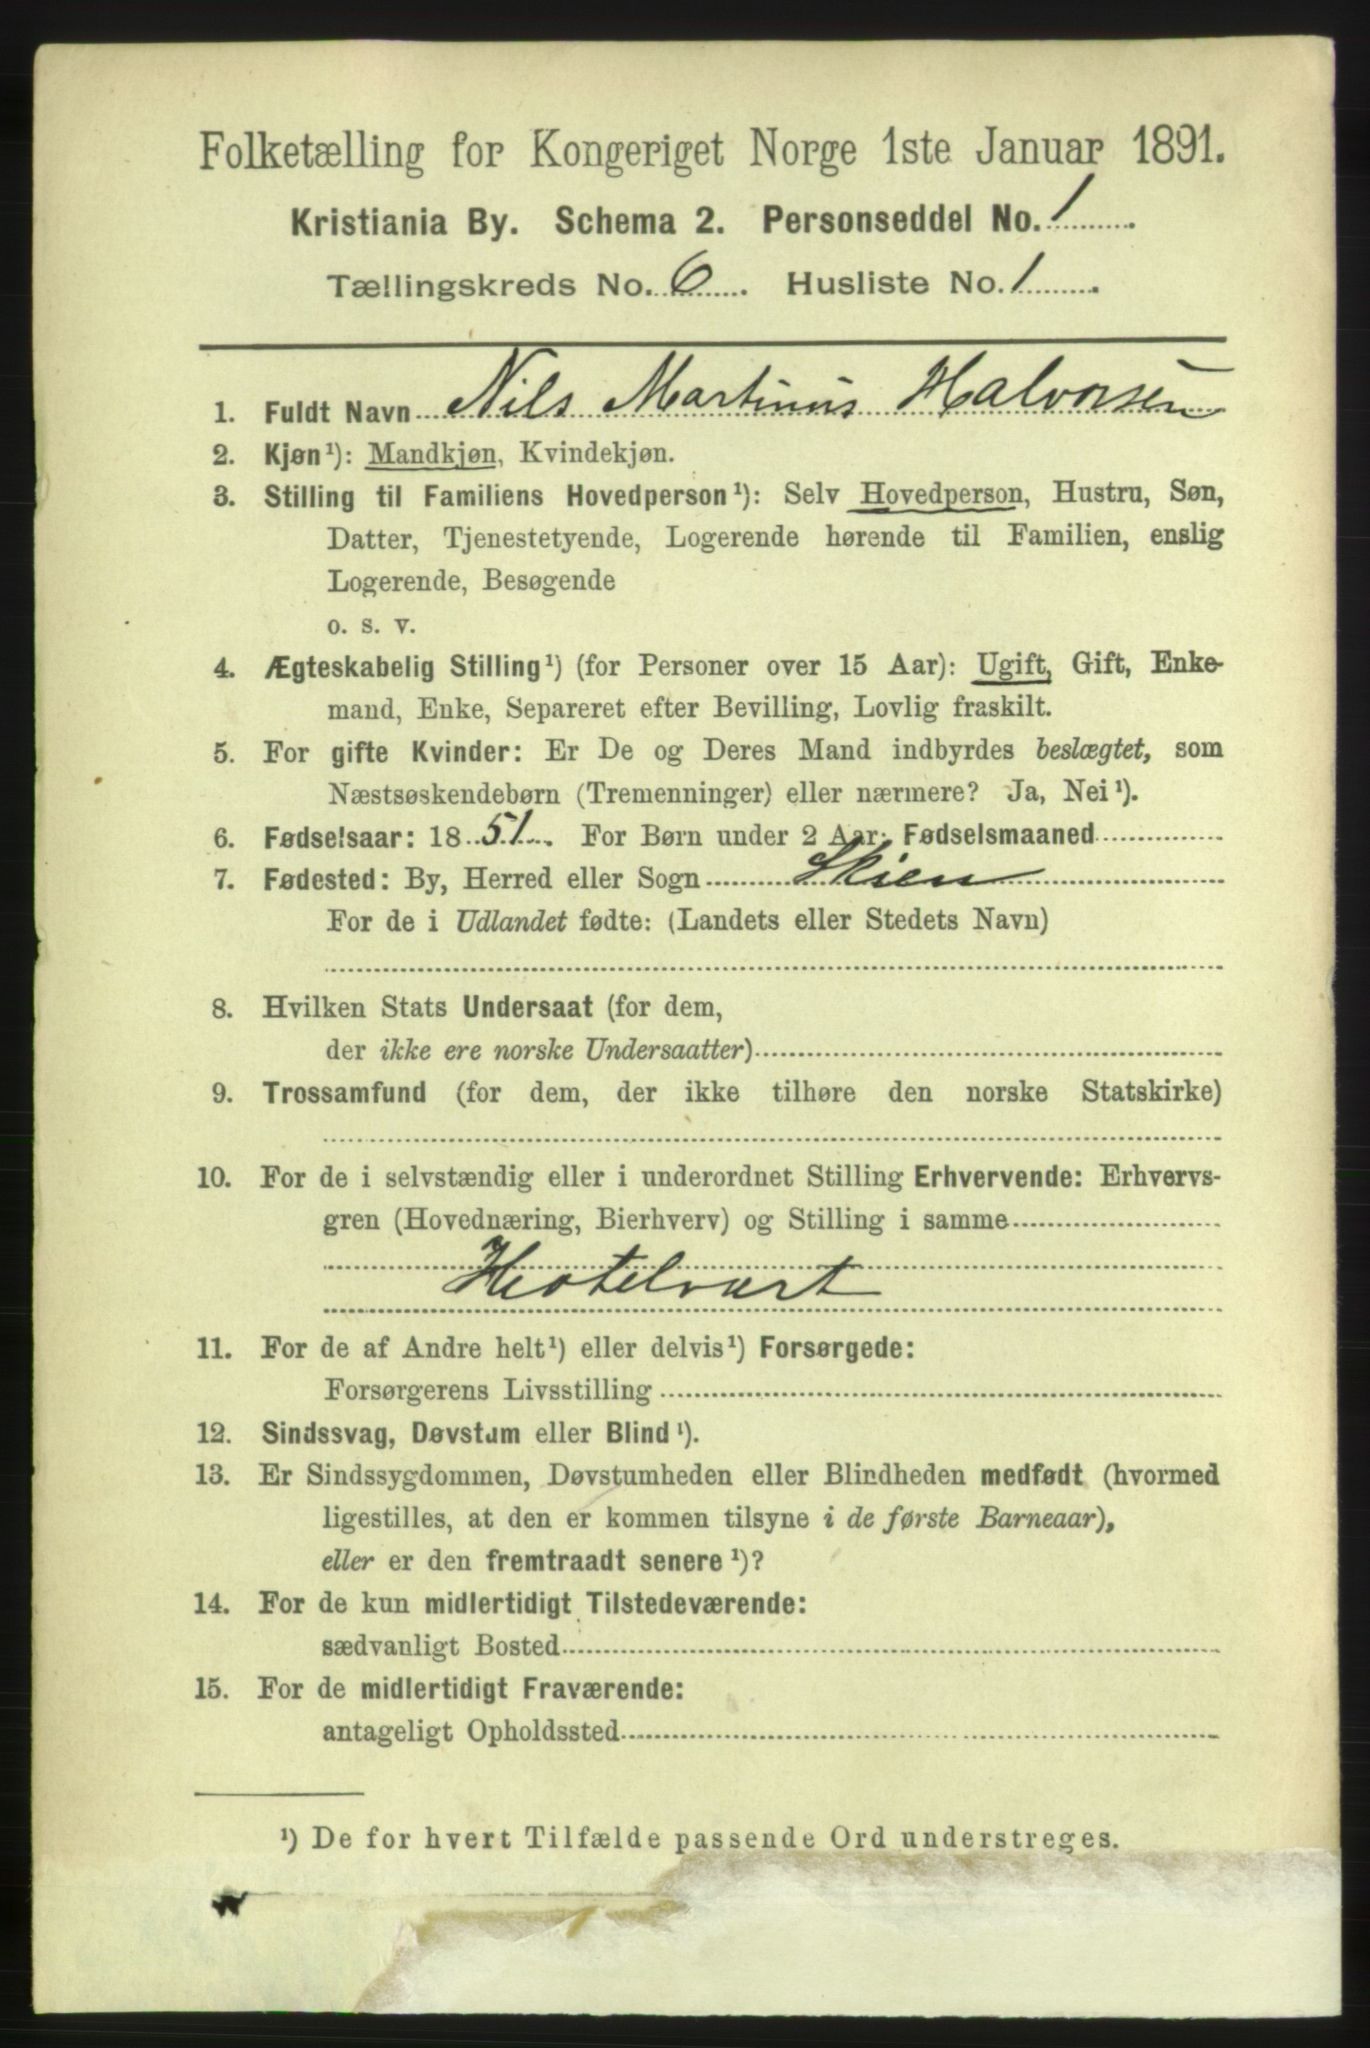 Folketælling for Kongeriget Norge 1ste Januar 1891.
Kristiania By. Schema 2. Personseddel No. 1
Tællingskreds No. 6. Husliste No. 1.
1. Fuldt Navn Nils Martinus Halvorsen
2. Kjøn¹): Mandkjøn, Kvindekjøn.
3. Stilling til Familiens Hovedperson¹): Selv Hovedperson, Hustru, Søn,
Datter, Tjenestetyende, Logerende hørende til Familien, enslig
Logerende, Besøgende
o. s. v.
4. Ægteskabelig Stilling¹) (for Personer over 15 Aar): Ugift, Gift, Enke-
mand, Enke, Separeret efter Bevilling, Lovlig fraskilt.
5. For gifte Kvinder: Er De og Deres Mand indbyrdes beslægtet, som
Næstsøskendebørn (Tremenninger) eller nærmere? Ja, Nei¹).
6. Fødselsaar: 1851. For Børn under 2 Aar: Fødselsmaaned
7. Fødested: By, Herred eller Sogn Skien
For de i Udlandet fødte: (Landets eller Stedets Navn)
8. Hvilken Stats Undersaat (for dem,
der ikke ere norske Undersaatter)
9. Trossamfund (for dem, der ikke tilhøre den norske Statskirke)
10. For de i selvstændig eller i underordnet Stilling Erhvervende: Erhvervs-
gren (Hovednæring, Bierhverv) og Stilling i samme
Hotelvært
11. For de af Andre helt¹) eller delvis¹) Forsørgede:
Forsørgerens Livsstilling
12. Sindssvag, Døvstum eller Blind¹).
13. Er Sindssygdommen, Døvstumheden eller Blindheden medfødt (hvormed
ligestilles, at den er kommen tilsyne i de første Barneaar),
eller er den fremtraadt senere¹)?
14. For de kun midlertidigt Tilstedeværende:
sædvanligt Bosted
15. For de midlertidigt Fraværende:
antageligt Opholdssted
¹) De for hvert Tilfælde passende Ord understreges.